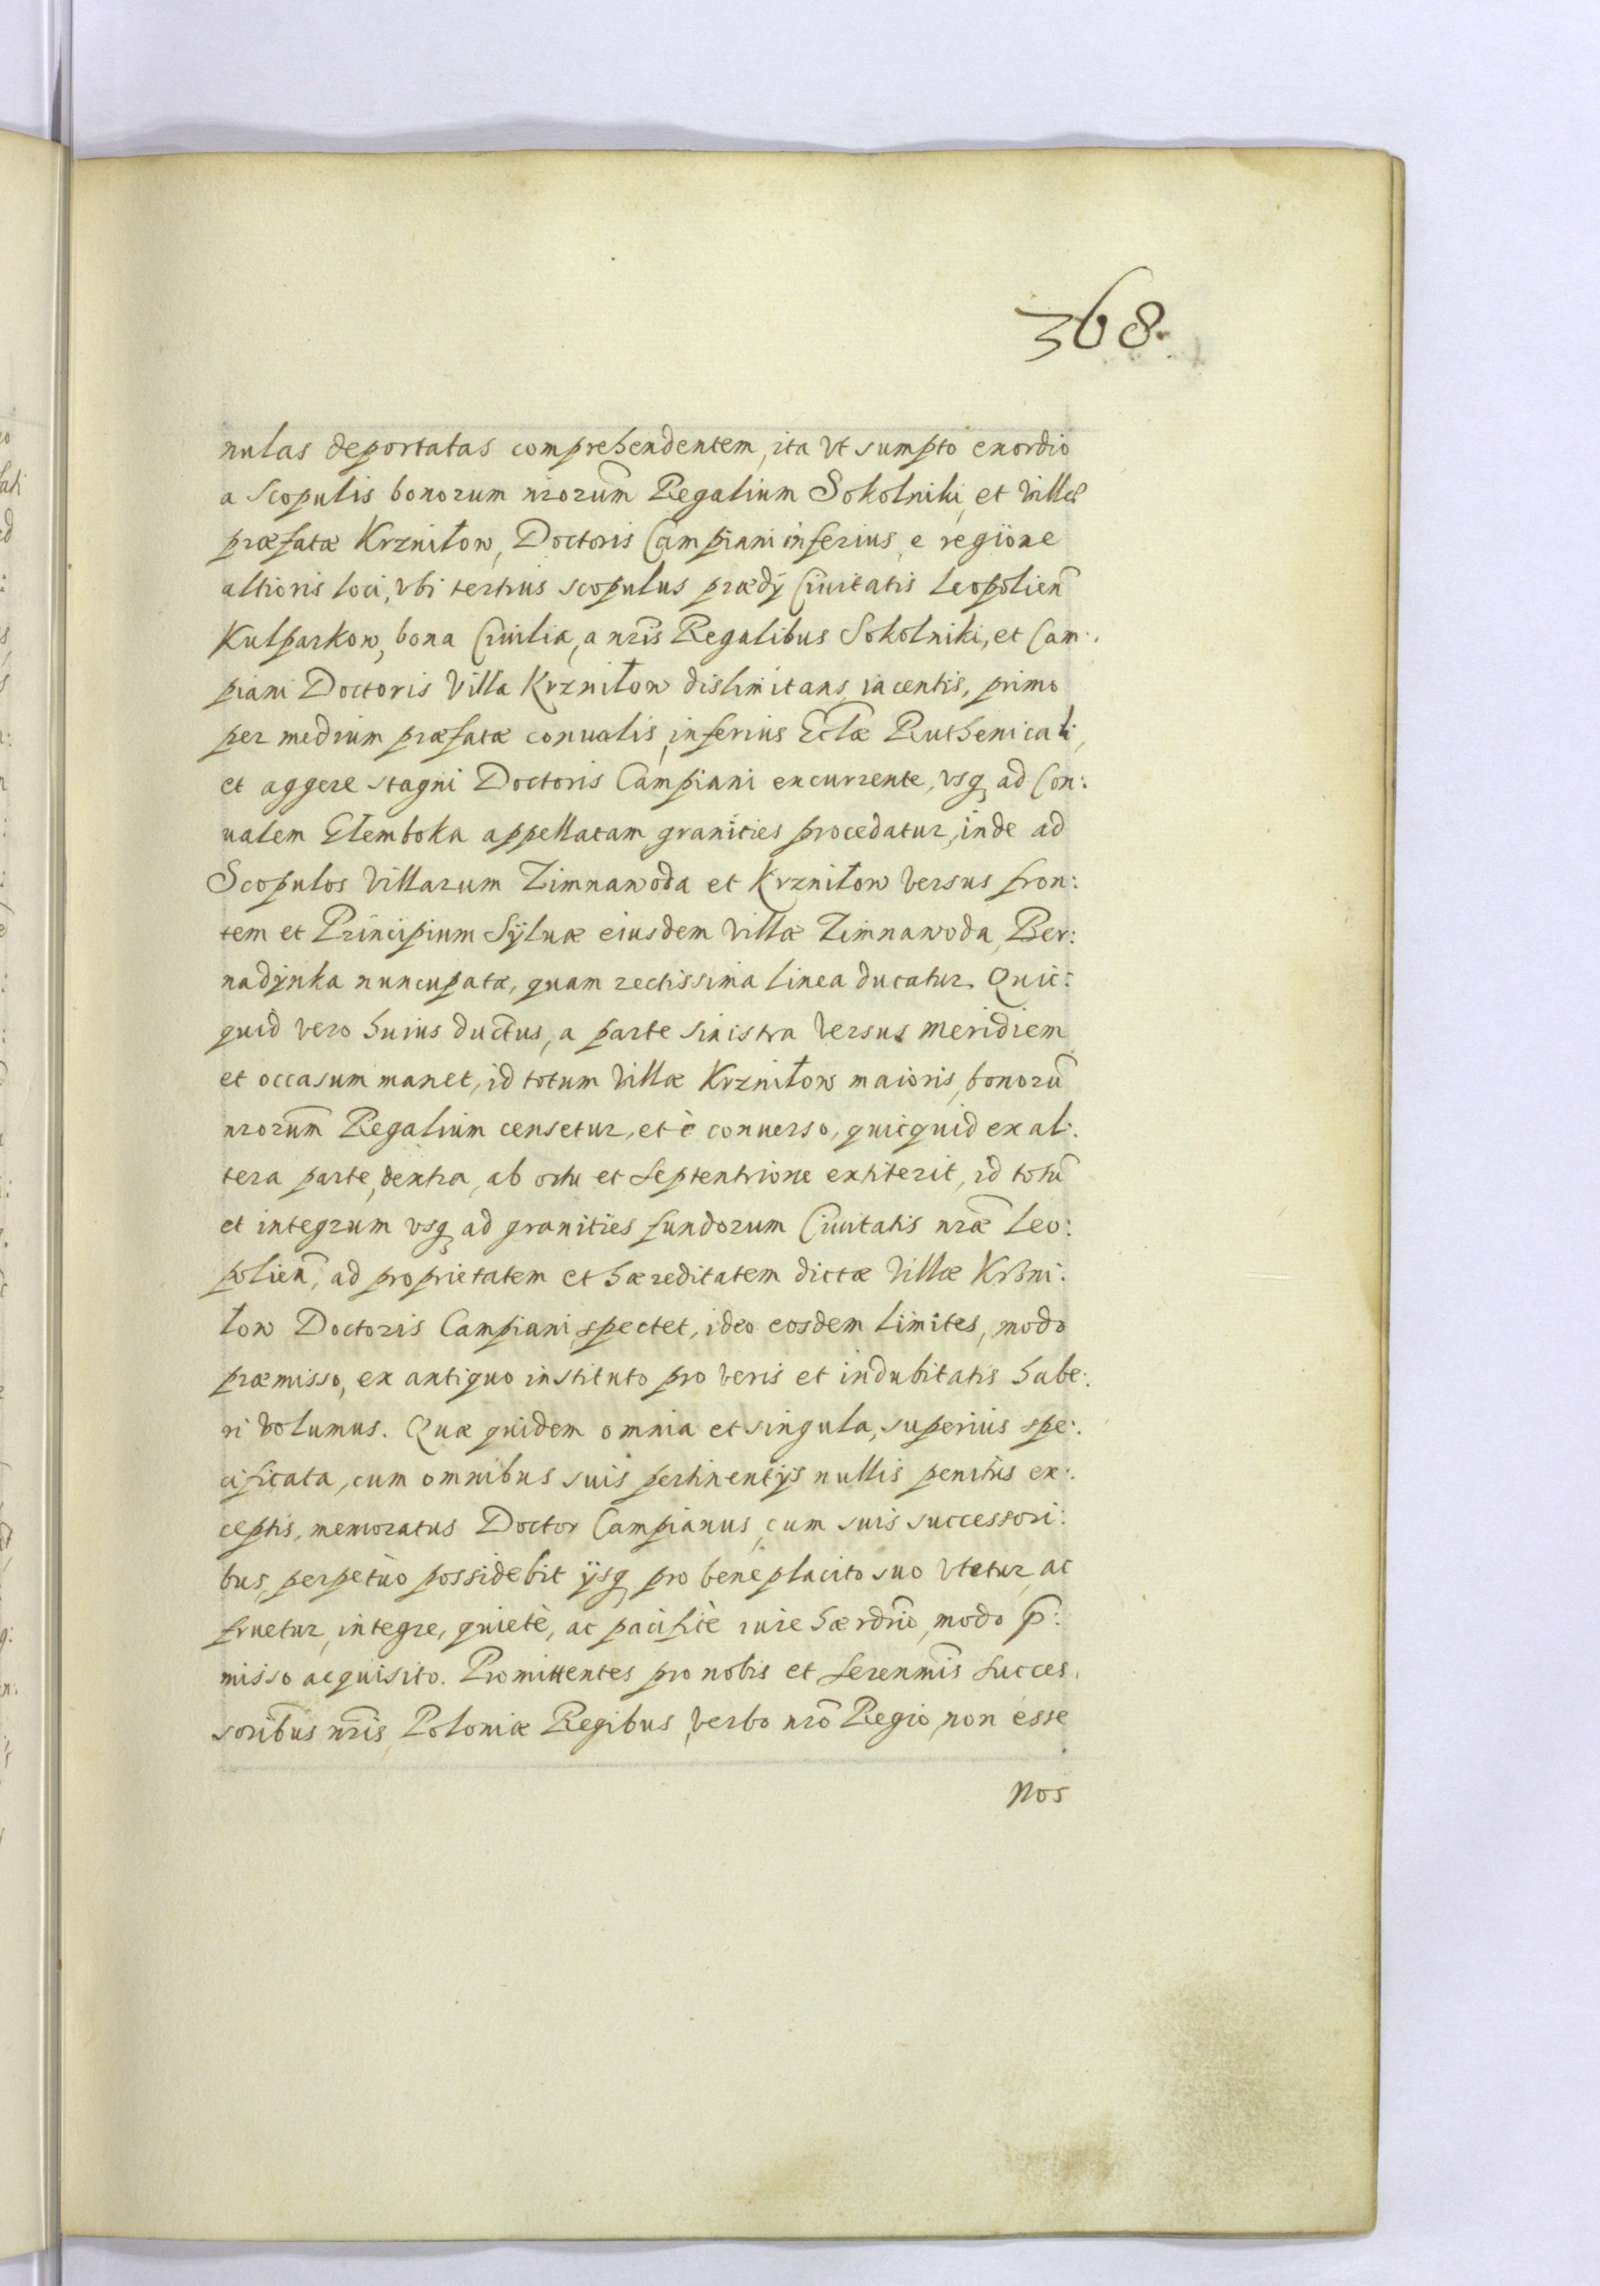 368.
nulas deportatas comprehendentem, ita vt sumpto exordio
a Scopulis bonorum nrorum̃ Regalium Sokolniki, et villæ
præfatæ Krzniłow, Doctoris Campiani inferius, e regione
altioris loci, vbi tertius scopulus prædÿ Ciuitatis Leopolien̄
Kulparkow, bona Ciuilia, a nr̃is Regalibus Sokolniki, et Cam:
piani Doctoris Villa Krzniłow dislimitans, iacentis, primo
per medium præfatæ conualis, inferius Ecl̃æ Ruthenicali,
et aggere stagni Doctoris Campiani excurrente, vsq ad Con:
ualem Głemboka appellatam granities procedatur, inde ad
Scopulos Villarum Zimnawoda et Krzniłow versus fron:
tem et Principium Sÿluæ eiusdem villæ Zimnawoda, Ber:
nadÿnka nuncupatæ, quam rectissima linea ducatur. Quic:
quid vero huius ductus, a parte sinistra versus meridiem
et occasum manet, id totum villæ Krzniłow maioris, bonorũ
nrorum̃ Regalium censetur, et è conuerso, quicquid ex al:
tera parte, dextra, ab ortu et Septentrione extiterit, id totũ
et integrum vsq ad granities fundorum Ciuitatis nræ̃ Leo:
polien̄, ad proprietatem et hæreditatem dictæ Villæ Krzni:
łow Doctoris Campiani spectet, ideo eosdem limites, modo
præmisso, ex antiquo instituto pro veris et indubitatis habe:
ri volumus. Quæ quidem omnia et singula, superius spe:
cificata, cum omnibus suis pertinentÿs nullis penitus ex:
ceptis, memoratus Doctor Campianus, cum suis successori:
bus, perpetuo possidebit ÿsq pro beneplacito suo vtetur, ac
fruetur, integre, quietè, ac pacificè iure hærdrio̅, modo p̃:
misso acquisito. Promittentes pro nobis et Serenm̃is Succes,
soribus nr̃is, Poloniæ Regibus, verbo nrõ Regio, non esse
nos